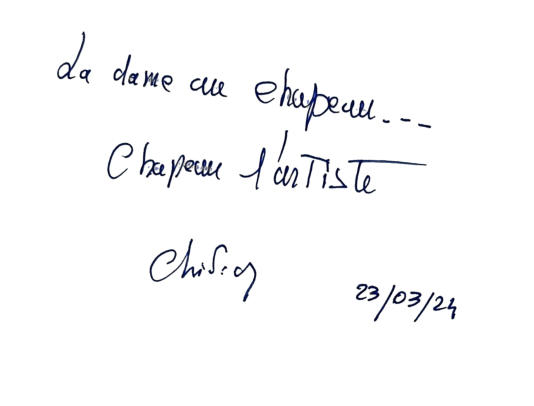 La dame au chapeau...
Chapeau l'artiste
23/03/24